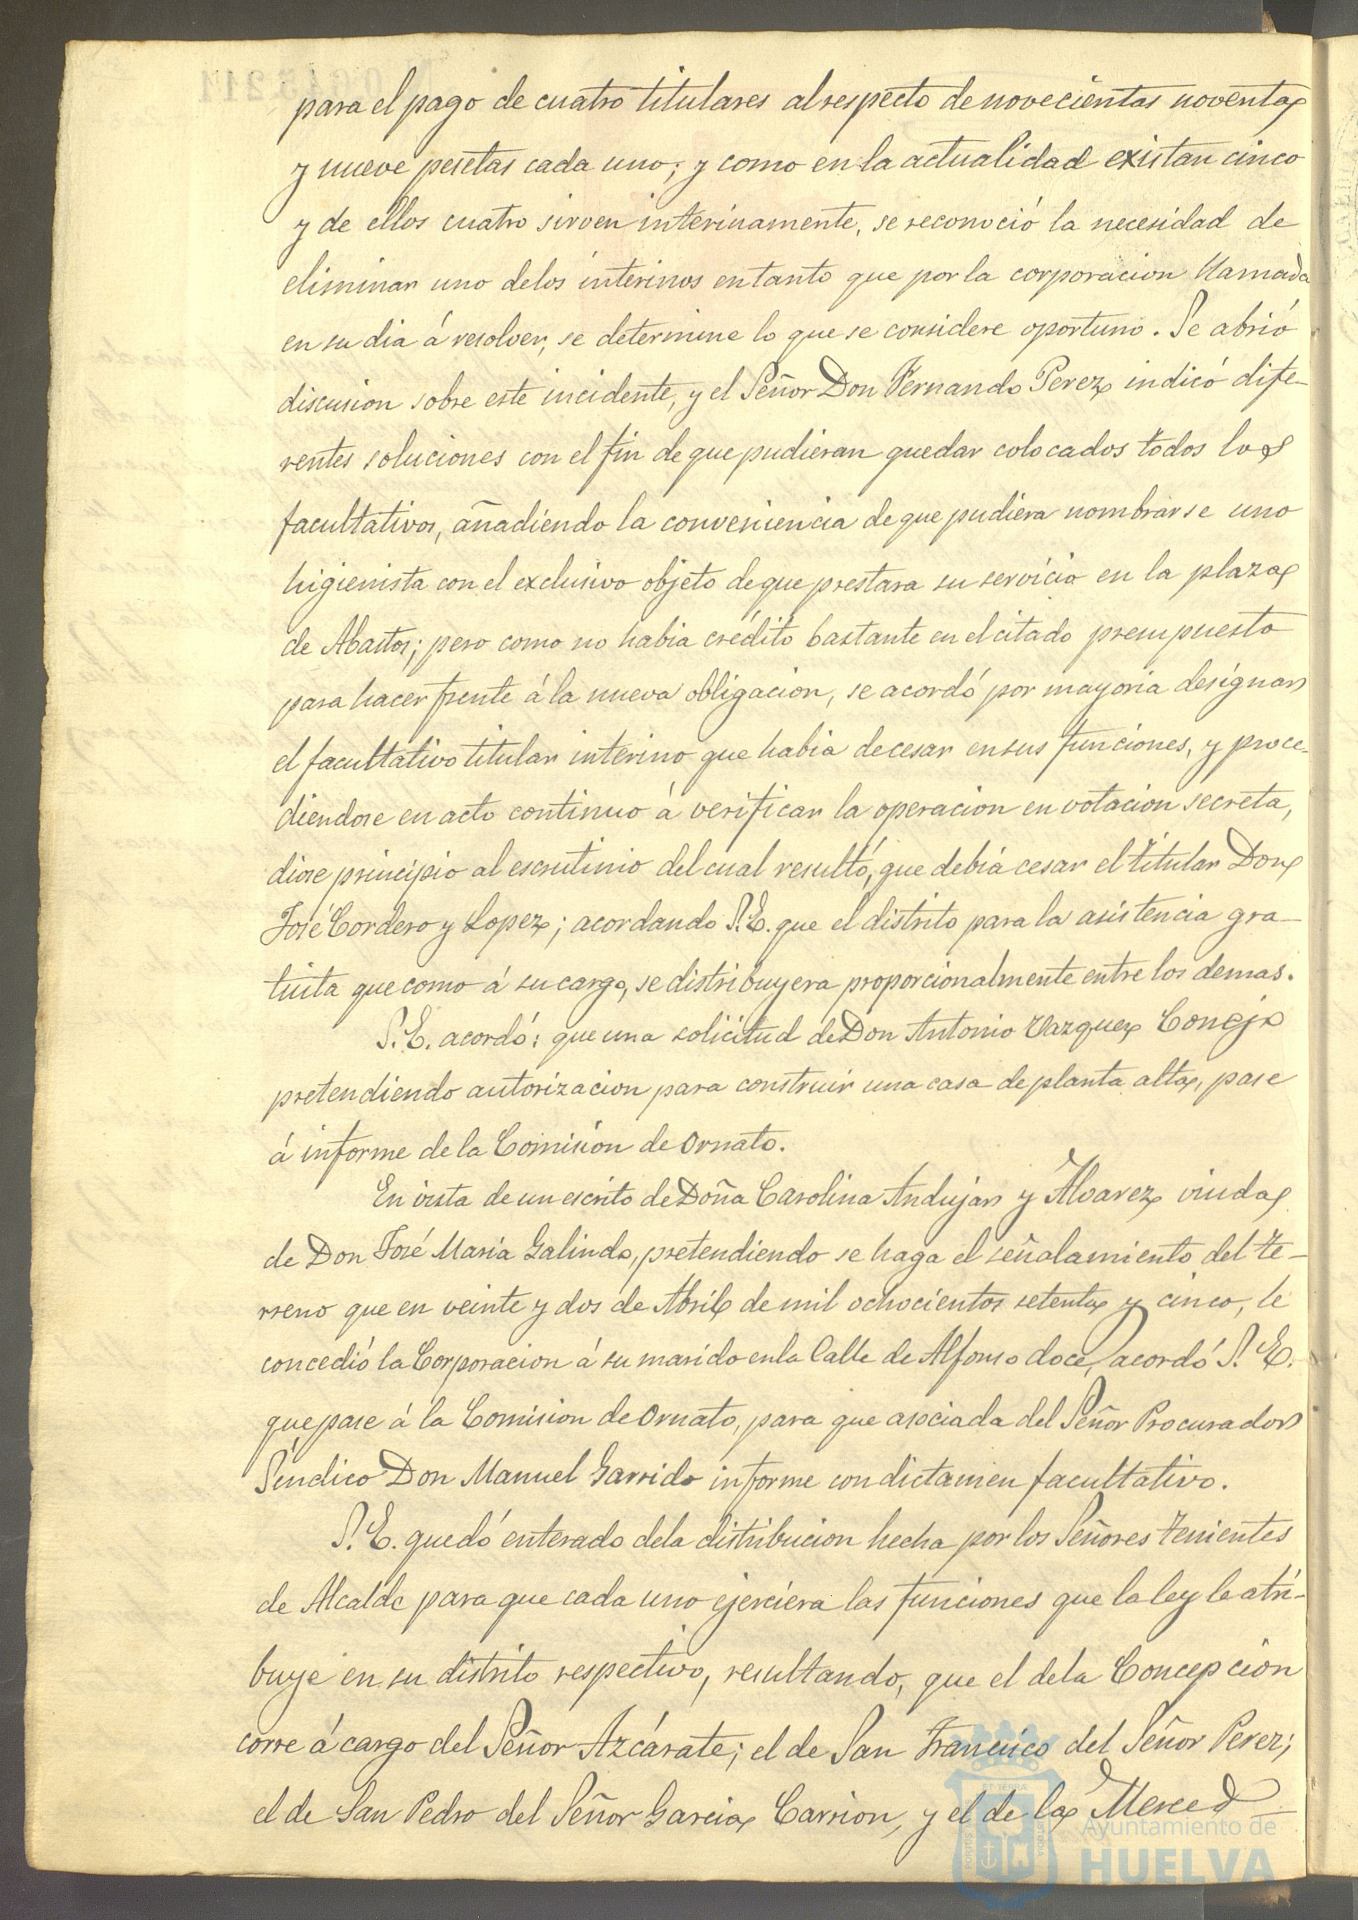 para el pago de cuatro titulares al respecto de novecientas noventa
y nueve pesetas cada uno; y como en la actualidad existan cinco
y de ellos cuatro sirven interinamente, se reconoció la necesidad de
eliminar uno delos interinos en tanto que por la corporacion llamada
en su dia á resolver, se determine lo que se considere oportuno. Se abrió
discusion sobre este incidente, y el Señor Don Fernando Perez indicó dife-
rentes soluciones con el fin de que pudieran quedar colocados todos los
facultativos, añadiendo la conveniencia de que pudiera nombrarse uno
higienista con el exclusivo objeto de que prestara su servicio en la plaza
de Abastos; pero como no habia crédito bastante en el citado presupuesto
para hacer frente á la nueva obligacion, se acordó por mayoria designar
el facultativo titular interino que habia de cesar en sus funciones, y proce-
diendose en acto continuo á verificar la operacion en votacion secreta,
diose principio al escrutinio del cual resultó, que debia cesar el titular Don
José Cordero y Lopez; acordando S.E. que el distrito para la asistencia gra-
tuita que como á su cargo, se distribuyera proporcionalmente entre los demas.
S.E. acordó: que una solicitud de Don Antonio Vazquez Conejo
pretendiendo autorizacion para construir una casa de planta alta, pase
á informe de la Comisión de Ornato.
En vista de un escrito de Doña Carolina Andujar y Álvarez viuda
de Don José Maria Galindo, pretendiendo se haga el señalamiento del te-
rreno que en veinte y dos de Abril de mil ochocientos setenta y cinco, le
concedió la Corporacion á su marido en la Calle de Alfonso doce, acordó S.E.
que pase á la Comision de Ornato, para que asociada del Señor Procurador
Síndico Don Manuel Garrido informe con dictamen facultativo.
S.E. quedó enterado dela distribucion hecha por los Señores tenientes
de Alcalde para que cada uno ejerciera las funciones que la ley le atri-
buye en su distrito respectivo, resultando, que el dela Concepcion
corre á cargo del Señor Azcárate; el de San Francisco del Señor Perez;
el de San Pedro del Señor Garcia Carrion, y el de la Merced
Ayuntamiento de
HUELVA